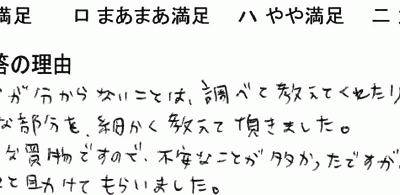 満足　ロ まあまあ満足　ハ やや満足　ニ
答の理由
が分からないことは、調べて教えてくれたり
な部分を、細かく教えて頂きました。
な買物ですので、不安なことが多かったですが
と助けてもらいました。